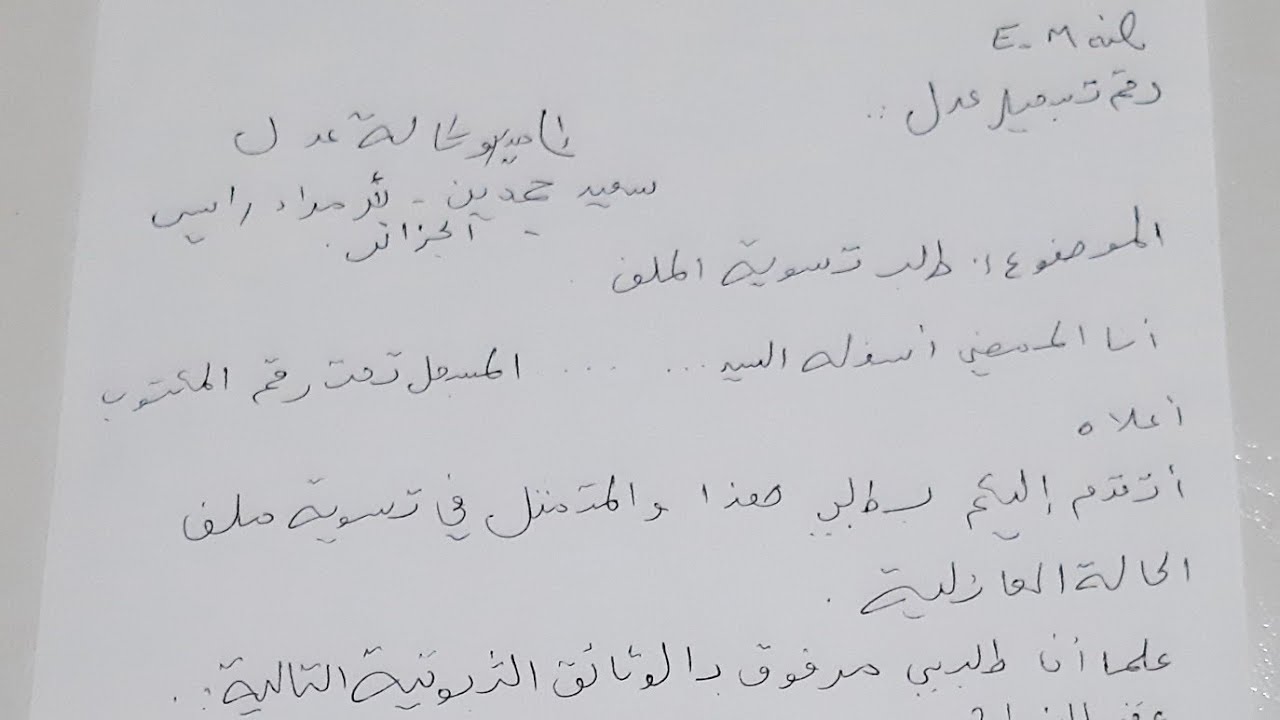 E-Mail
رقم تسجيل عدل :
إلى مدير وكالة عدل
سعيد حمدين - بئر مراد رايس
الجزائر.
الموضوع: طلب تسوية الملف
أنا الممضي أسفله السيد ... .... المسجل تحت رقم المكتوب
أعلاه
أتقدم إليكم بطلبي هذا والمتمثل في تسوية ملف
الحالة العائلية .
علما أن طلبي مرفوق بالوثائق الثبوتية التالية :